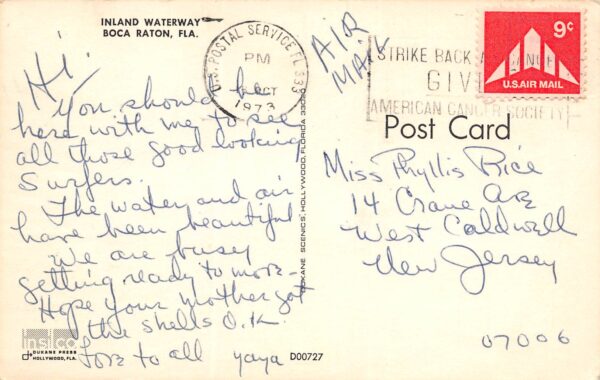 INLAND WATERWAY
BOCA RATON, FLA.
Hi.
You should be
here with me to see
all those good looking
Surfers.
The water and air
have been beautiful
We are busy
getting ready to move-
Hope your mother got
the shells O.K.
Love to all yaya
insilco
DUKANE PRESS
HOLLYWOOD, FLA.
D00727
DUKANE SCENICS, HOLLYWOOD, FLORIDA 33020
U.S. POSTAL SERVICE FL 333
PM
OCT
1973
AIR
MAIL
STRIKE BACK
GIVE
AMERICAN CANCER SOCIETY
9c
U.S. AIR MAIL
Post Card
Miss Phyllis Rice
14 Crane Ave
West Caldwell
New Jersey
07006